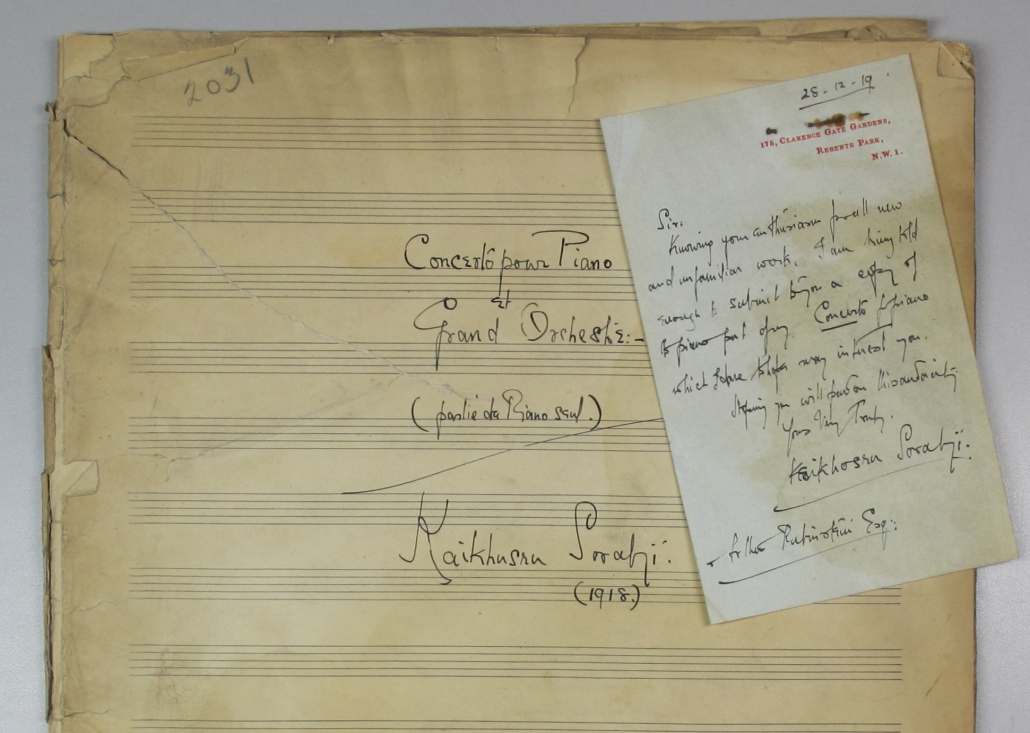 2031
Concerto pour Piano
et
Grand Orchestre:-
(partie de Piano seul.)
Kaikhusru Sorabji.
(1918.)
28-12-19.
175, CLARENCE GATE GARDENS,
REGENTS PARK,
N.W.1.
Sir,
Knowing your enthusiasm for all new
and unfamiliar work, I am being bold
enough to submit to you a copy of
piano part of my Concerto piano
which I hope may interest you.
Hoping you will pardon this audacity
Yours Very Truly,
Kaikhosru Sorabji.
Arthur Rubinstein Esq: